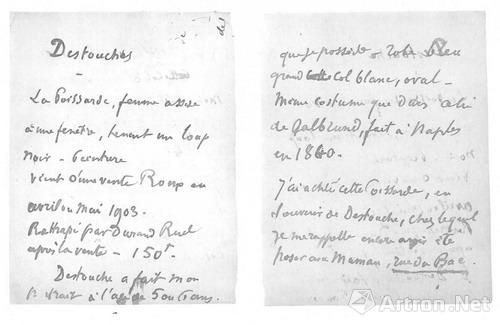 Destouches
La Poissarde, femme assise
à une fenêtre, tenant un loup
noir - Peinture
vient d'une vente Roup en
avril ou mai 1903.
Rattrapé par Durand Ruel
après la vente - 150f.
Destouche a fait mon
portrait à l'age de 5 ou 6 ans.
que je possède robe bleu
grand col blanc, oval -
Meme costume que dans celui
de Galbrund, fait à Naples
en 1840.
J'ai acheté cette Poissarde, en
souvenir de Destouche, chez lequel
je me rappelle encore avoir été
poser avec Maman, rue du Bac.
Artron.Net